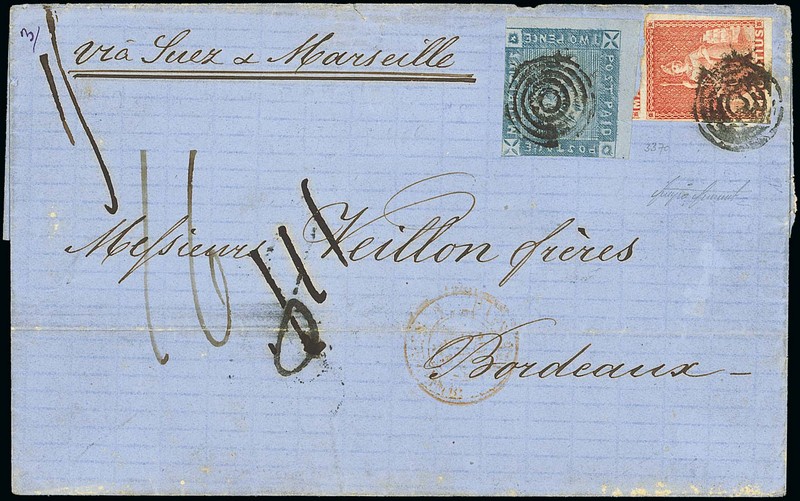 3/
via Suez & Marseille
TWO PENCE
POST PAID
POSTAGE
3370
16
Messieurs Veillon frères
Bordeaux –